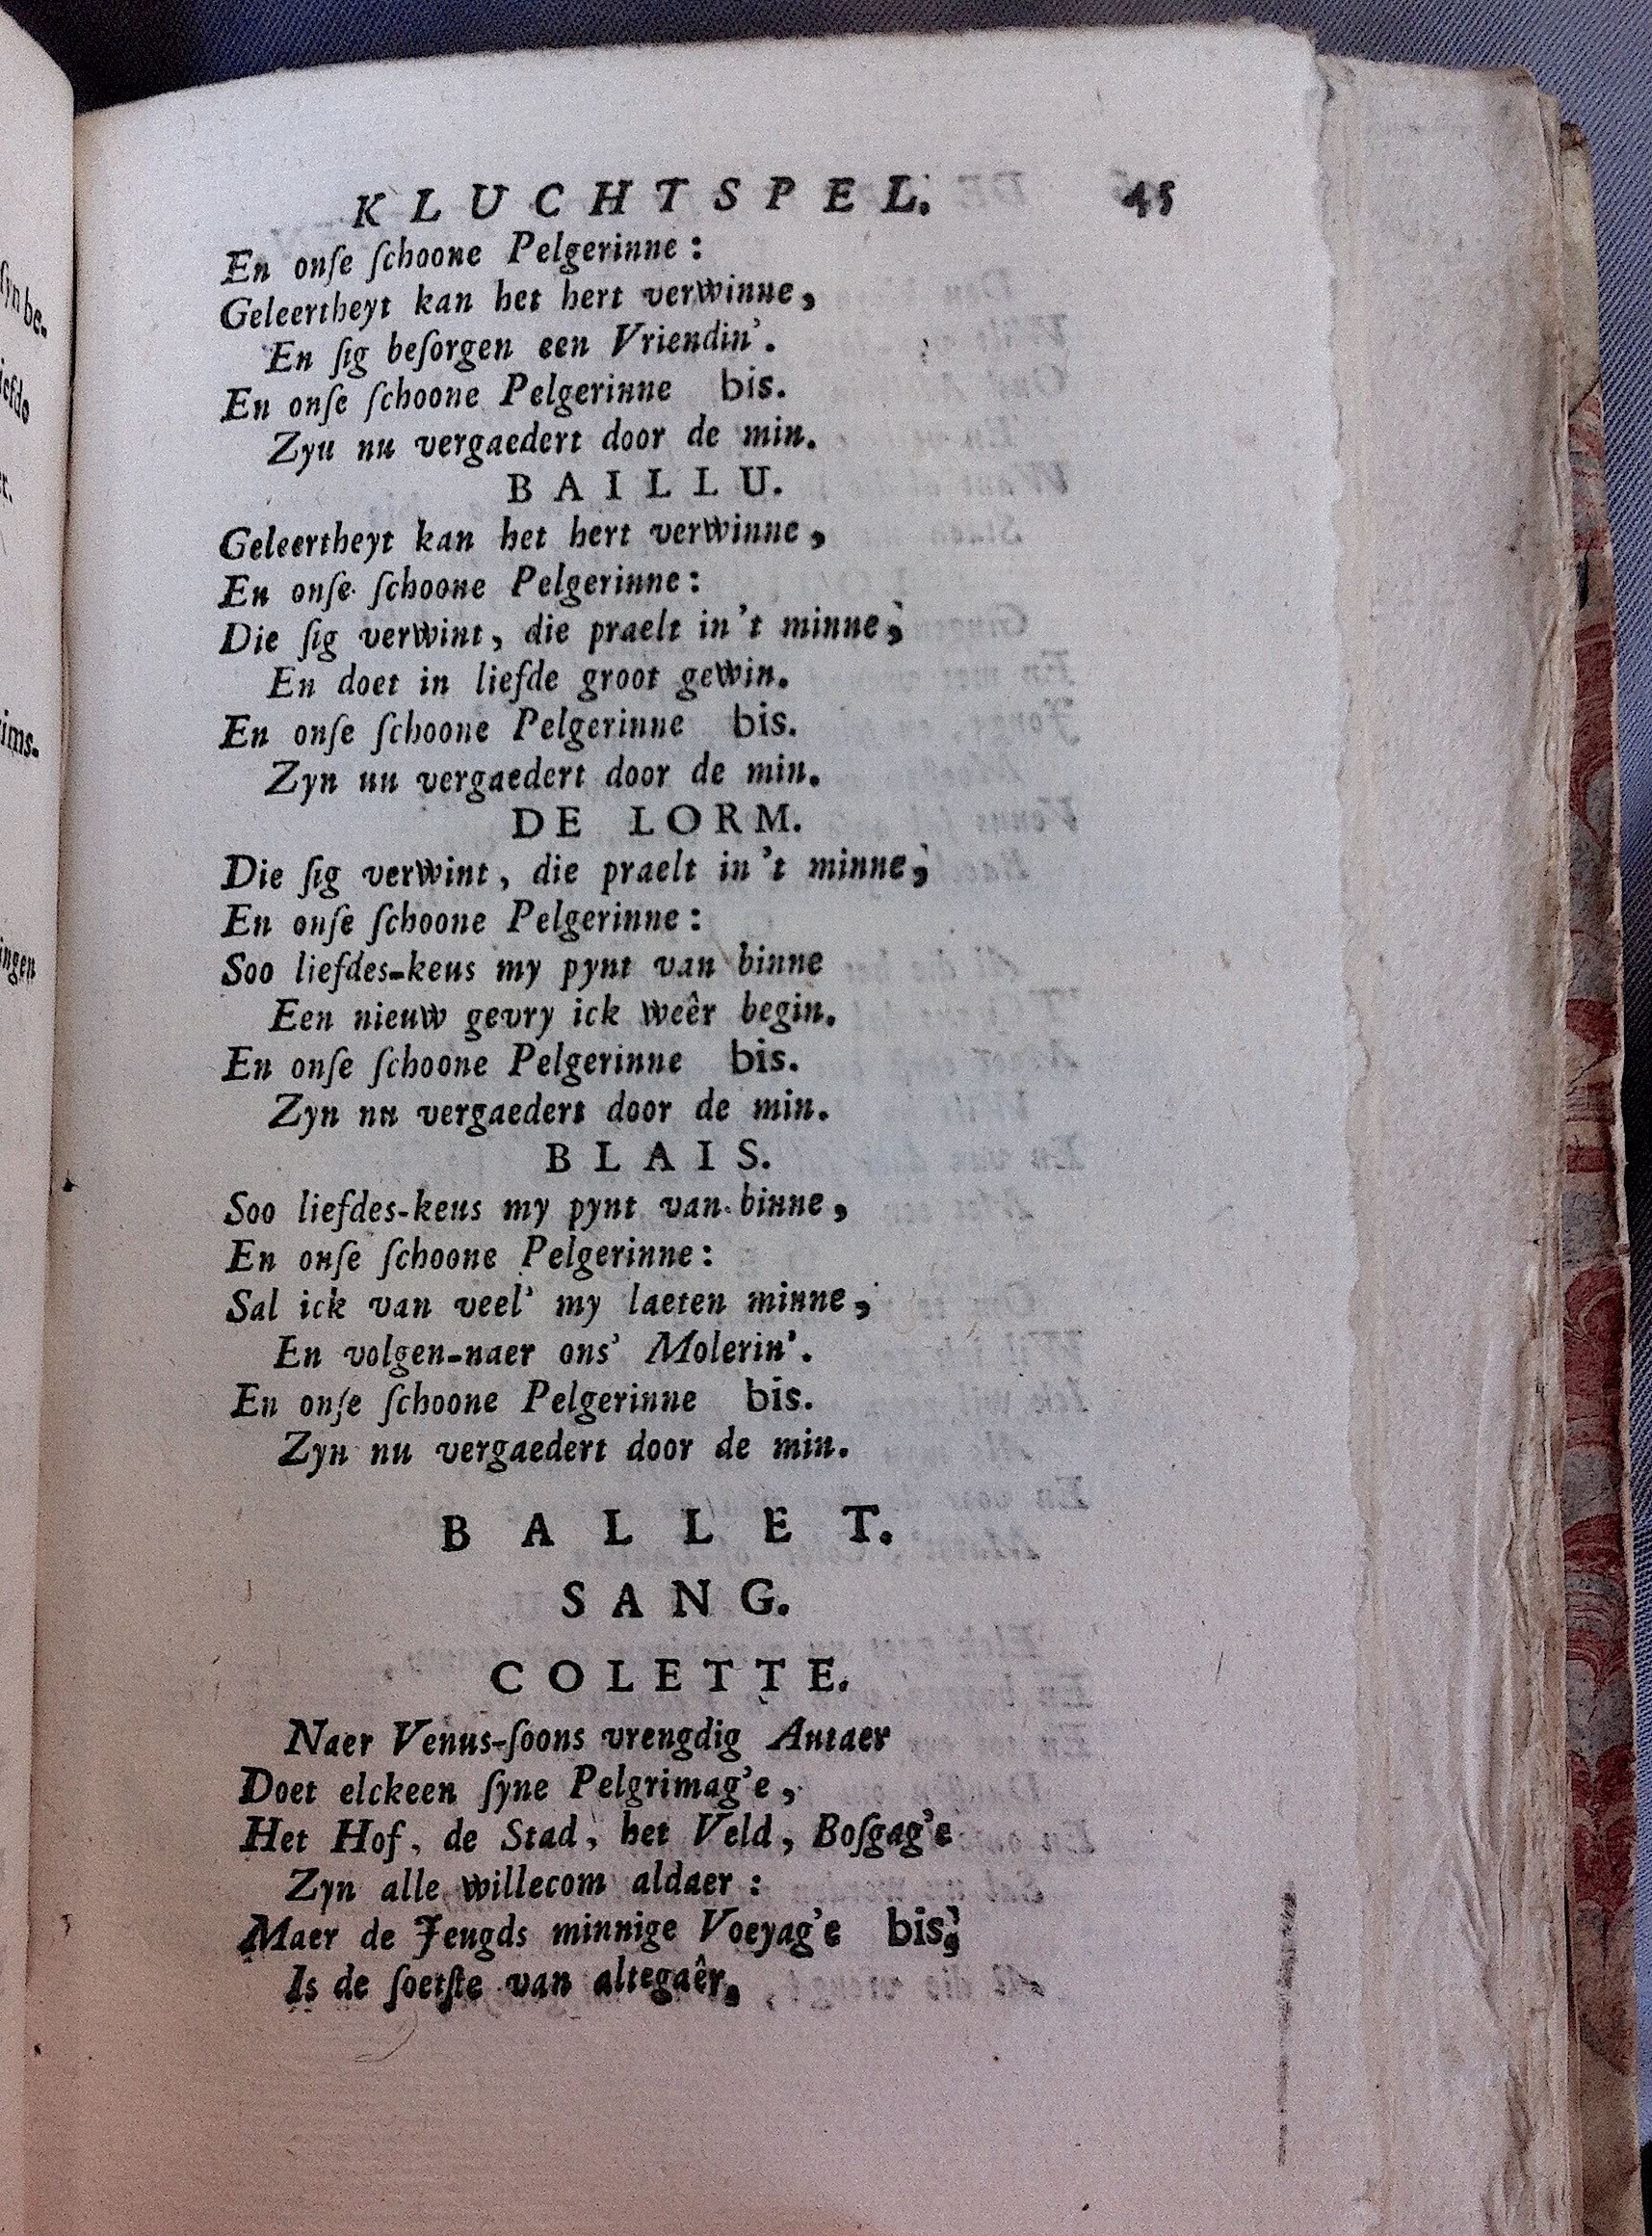 KLUCHTSPEL. 45
En onſe ſchoone Pelgerinne :
Geleertheyt kan het hert verwinne,
En ſig beſorgen een Vriendin'.
En onſe ſchoone Pelgerinne bis.
Zyn nu vergaedert door de min.
BAILLU.
Geleertheyt kan het hert verwinne,
En onſe ſchoone Pelgerinne :
Die ſig verwint, die praelt in't minne;
En doet in liefde groot gewin.
En onſe ſchoone Pelgerinne bis.
Zyn nu vergaedert door de min.
DE LORM.
Die ſig verwint, die praelt in't minne;
En onſe ſchoone Pelgerinne :
Soo liefdes-keus my pynt van binne
Een nieuw gevry ick weêr begin.
En onſe ſchoone Pelgerinne bis.
Zyn nu vergaedert door de min.
BLAIS.
Soo liefdes-keus my pynt van binne,
En onſe ſchoone Pelgerinne :
Sal ick van veel' my laeten minne,
En volgen-naer ons' Molerin'.
En onſe ſchoone Pelgerinne bis.
Zyn nu vergaedert door de min.
BALLET.
SANG.
COLETTE.
Naer Venus-ſoons vrengdig Autaer
Doet elckeen ſyne Pelgrimag'e,
Het Hof, de Stad, het Veld, Boſgag'e
Zyn alle willecom aldaer :
Maer de Jeugds minnige Voeyag'e bis;
Is de ſoetſte van altegaêr.